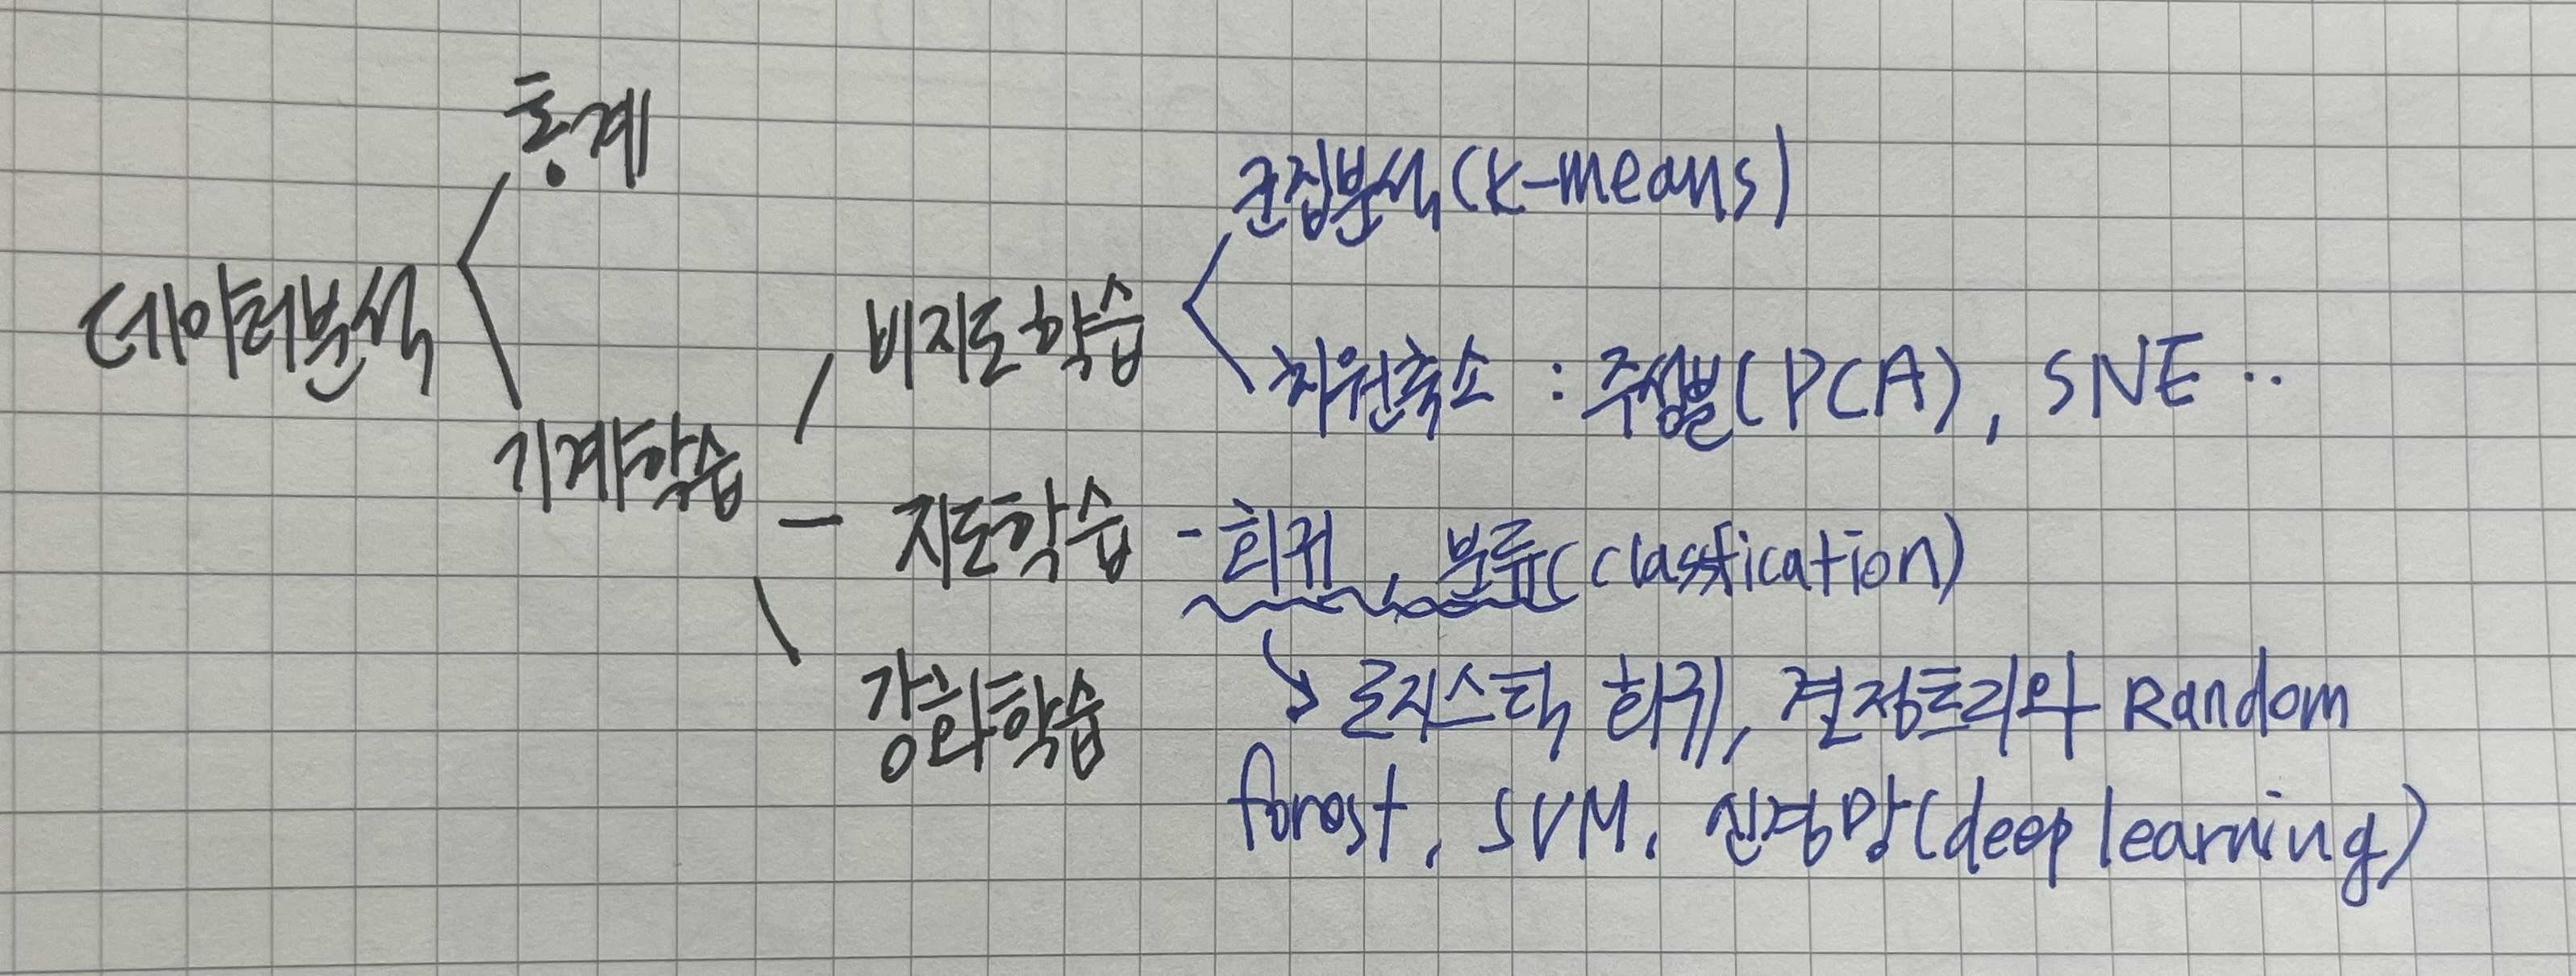 통계
데이터분석
기계학습
비지도학습
군집분석(k-means)
차원축소 : 주성분(PCA), SNE ..
지도학습 - 회귀, 분류(classfication)
로지스틱 회귀, 결정트리와 Random
forest, SVM, 신경망(deep learning)
강화학습